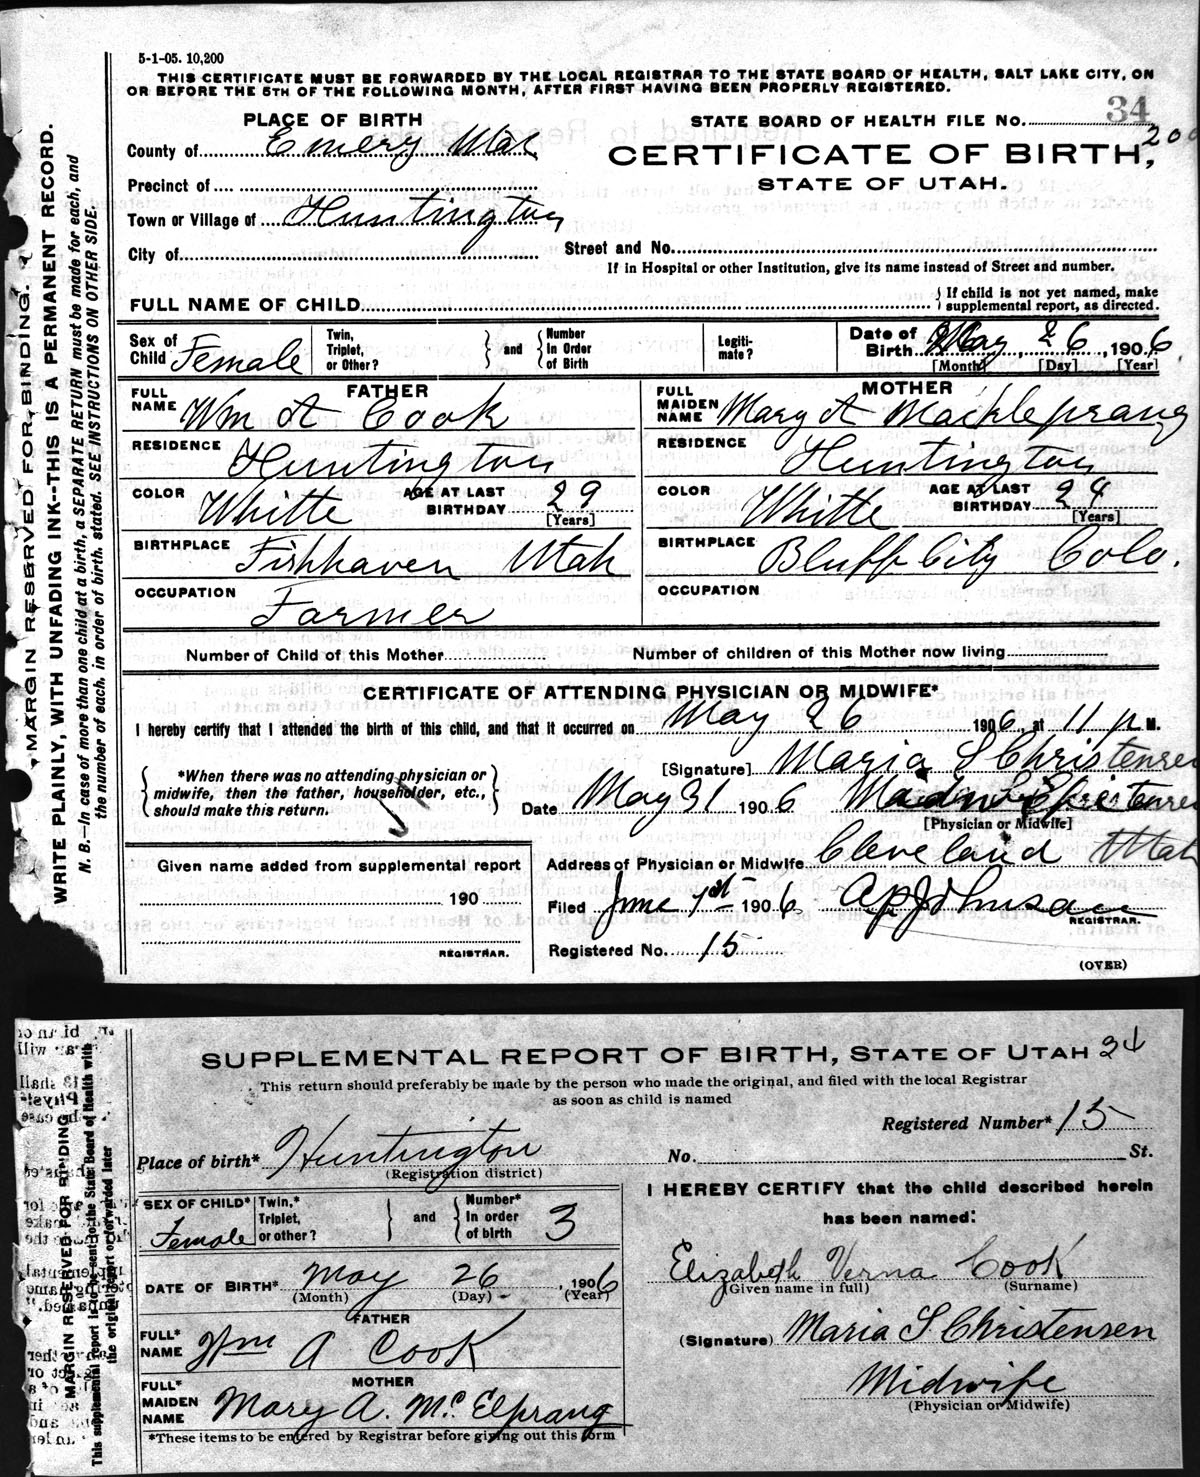 5-1-05. 10,200
THIS CERTIFICATE MUST BE FORWARDED BY THE LOCAL REGISTRAR TO THE STATE BOARD OF HEALTH, SALT LAKE CITY, ON
OR BEFORE THE 5TH OF THE FOLLOWING MONTH, AFTER FIRST HAVING BEEN PROPERLY REGISTERED.
MARGIN RESERVED FOR BINDING.
WRITE PLAINLY, WITH UNFADING INK--THIS IS A PERMANENT RECORD.
N. B.—In case of more than one child at a birth, a SEPARATE RETURN must be made for each, and
the number of each, in order of birth, stated. SEE INSTRUCTIONS ON OTHER SIDE.
PLACE OF BIRTH
County of Emery Utah
Precinct of
Town or Village of Huntington
City of
STATE BOARD OF HEALTH FILE No. 34
200
CERTIFICATE OF BIRTH,
STATE OF UTAH.
Street and No.
If in Hospital or other Institution, give its name instead of Street and number.
FULL NAME OF CHILD
If child is not yet named, make
supplemental report, as directed.
Sex of Child Female
Twin, Triplet, or Other?
and
Number In Order of Birth
Legiti-mate?
Date of Birth May 26, 1906.
[Month] [Day] [Year]
FATHER
FULL NAME Wm A Cook
RESIDENCE Huntington
COLOR Whitte AGE AT LAST BIRTHDAY 29
[Years]
BIRTHPLACE Fishhaven Utah
OCCUPATION Farmer
MOTHER
FULL MAIDEN NAME Mary A Mackleprang
RESIDENCE Huntington
COLOR Whitte AGE AT LAST BIRTHDAY 24
[Years]
BIRTHPLACE Bluff City Colo.
OCCUPATION
Number of Child of this Mother
Number of children of this Mother now living
CERTIFICATE OF ATTENDING PHYSICIAN OR MIDWIFE*
I hereby certify that I attended the birth of this child, and that it occurred on May 26 1906, at 11 p M.
*When there was no attending physician or
midwife, then the father, householder, etc.,
should make this return.
[Signature] Maria S Christensen
Date May 31 1906
[Physician or Midwife]
Given name added from supplemental report
190
REGISTRAR.
Address of Physician or Midwife Cleveland Utah
Filed June 1st 1906 A P Johnson
REGISTRAR.
Registered No. 15
(OVER)
SUPPLEMENTAL REPORT OF BIRTH, STATE OF UTAH 34
This return should preferably be made by the person who made the original, and filed with the local Registrar
as soon as child is named
MARGIN RESERVED FOR BINDING
This supplemental report is to be sent to the State Board of Health with
the original report or forwarded later
Registered Number* 15
Place of birth* Huntington
(Registration district)
No. St.
SEX OF CHILD* Female
Twin,* Triplet, or other?
and
Number* In order of birth 3
DATE OF BIRTH* May 26, 1906
(Month) (Day) (Year)
FATHER
FULL* NAME Wm A Cook
MOTHER
FULL* MAIDEN NAME Mary A. McElprang
*These items to be entered by Registrar before giving out this form
I HEREBY CERTIFY that the child described herein
has been named:
Elizabeth Verna Cook
(Given name in full) (Surname)
(Signature) Maria S Christensen
Midwife
(Physician or Midwife)